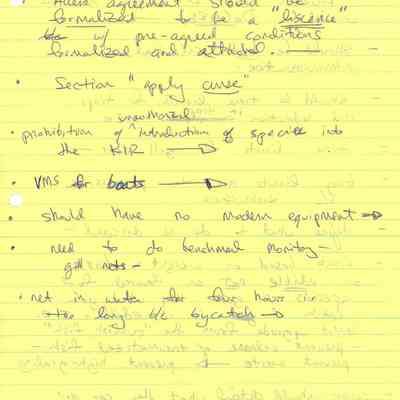 agreement should be
formalized to be a "liscence"
w/ pre-agreed conditions
formalized and attached.
• Section "apply
unauthorized
• prohibition of ^ introduction of species into
the KIR
• VMS for boats
• should have no modern equipment
• need to do benchmark monitoring -
gill nets -
• net in water for four hours is
too long b/c bycatch